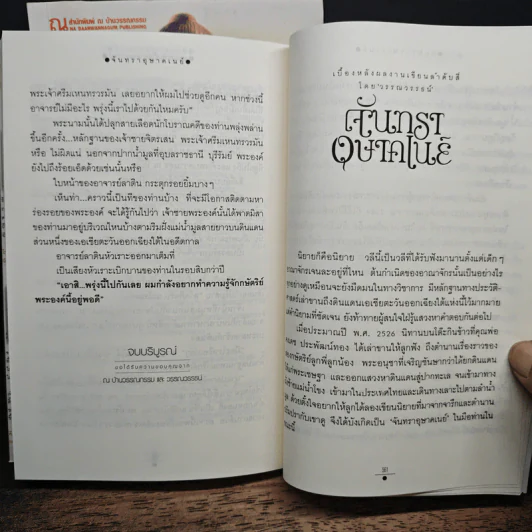 สำนักพิมพ์ ณ บ้านวรรณกรรม
NA BAANWANNAGUM PUBLISHING
จันทราอุษาคเนย์
พระเจ้าศรีมเหนทรวรมัน เลยอยากให้ผมไปช่วยดูอีกคน หากช่วงนี้
อาจารย์ไม่มีอะไร พรุ่งนี้เราไปด้วยกันไหมครับ”
พระนามนั้นได้ปลุกสายเลือดนักโบราณคดีของท่านพลุ่งพล่าน
ขึ้นอีกครั้ง...หลักฐานของเจ้าชายจิตรเสน พระเจ้าศรีมเหนทรวรมัน
หรือ ไม่ผิดแน่ นอกจากปากน้ำมูลที่อุบลราชธานี บุรีรัมย์ พระองค์
ยังไปถึงร้อยเอ็ดด้วยเช่นนั้นหรือ
ใบหน้าของอาจารย์ลาติน กระตุกรอยยิ้มบางๆ
เห็นท่า...คราวนี้เป็นทีของท่านบ้าง ที่จะมีโอกาสติดตามหา
ร่องรอยของพระองค์ จะได้รู้กันไปว่า เจ้าชายพระองค์นั้นได้พาดมิสา
ของท่านมาอยู่บริเวณไหนบ้างตามริมฝั่งแม่น้ำมูลสายยาวบนดินแดน
ส่วนหนึ่งของเอเชียตะวันออกเฉียงใต้ในอดีตกาล
อาจารย์ลาตินหัวเราะออกมาเต็มที่
เป็นเสียงหัวเราะเบิกบานของท่านในรอบสิบกว่าปี
“เอาสิ...พรุ่งนี้ไปกันเลย ผมกำลังอยากทำความรู้จักกษัตริย์
พระองค์นี้อยู่พอดี”
จบบริบูรณ์
ขอได้รับความขอบคุณจาก
ณ บ้านวรรณกรรม และ วรรณวรรธน์
เบื้องหลังผลงานเขียนลำดับสี่
โดย ‘วรรณวรรธน์’
จันทรา
อุษาคเนย์
นิยายก็คือนิยาย วลีนี้เป็นวลีที่ได้รับฟังมานานตั้งแต่เด็กๆ
อาณาจักรเจนละอยู่ที่ไหน ต้นกำเนิดของอาณาจักรนั้นเป็นอย่างไร
อยู่เหมือนจะยังมืดมนในทางวิชาการ มีหลักฐานทางประวัติ
ศาสตร์เล่าขานถึงดินแดนเอเชียตะวันออกเฉียงใต้แห่งนี้ไว้มากมาย
ตำนิยามที่ชัดเจน ยังท้าทายผู้สนใจใฝ่รู้แสวงหาคำตอบกันต่อไป
เมื่อประมาณปี พ.ศ. 2526 นิทานบนโต๊ะกินข้าวที่คุณพ่อ
ประพัฒน์ทอง ได้เล่าขานให้ลูกฟัง ถึงตำนานเรื่องราวของ
กษัตริย์ลูกพี่ลูกน้อง พระอนุชาที่เจริญชันษากว่าได้ยกดินแดน
ให้แก่พระเชษฐา และออกแสวงหาดินแดนสู่ปากทะเล จนเข้ามาทาง
แม่น้ำโขง เข้ามาในประเทศไทยและเดินทางเลาะไปตามลำน้ำ
ด้วยตั้งใจอยากให้ลูกได้ลองเขียนนิยายที่มาจากจารึกและตำนาน
จึงได้บังเกิดเป็น ‘จันทราอุษาคเนย์’ ในมือท่านใน